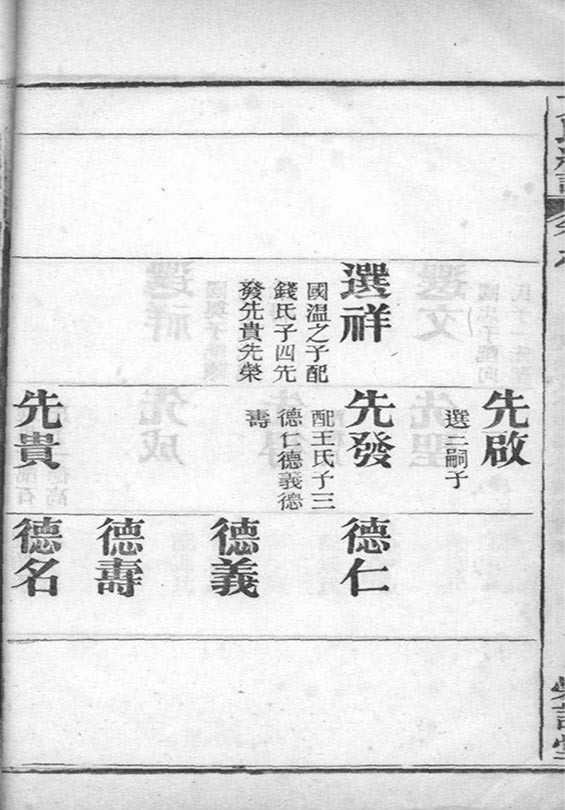 選祥
國溫之子配
錢氏子四先
發先貴先榮
先啟
選三嗣子
先發
配王氏子三
德仁德義德
壽
先貴
德仁
德義
德壽
德名